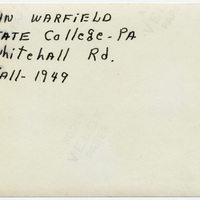 IN WARFIELD
TATE College-PA
Whitehall Rd.
all-1949